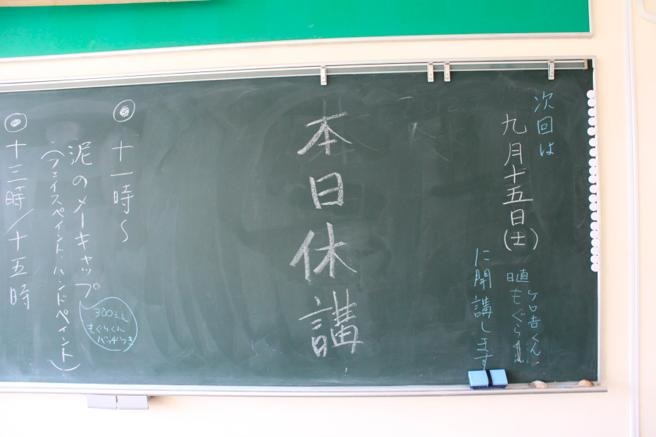 次回は
九月十五日(土)
に開講します
日直
もぐら
本日休講
◎十一時~
泥のメーキャップ
(フェイスペイント ハンドペイント)
300えん
もぐらくん
バッチつき
◎十三時/十五時